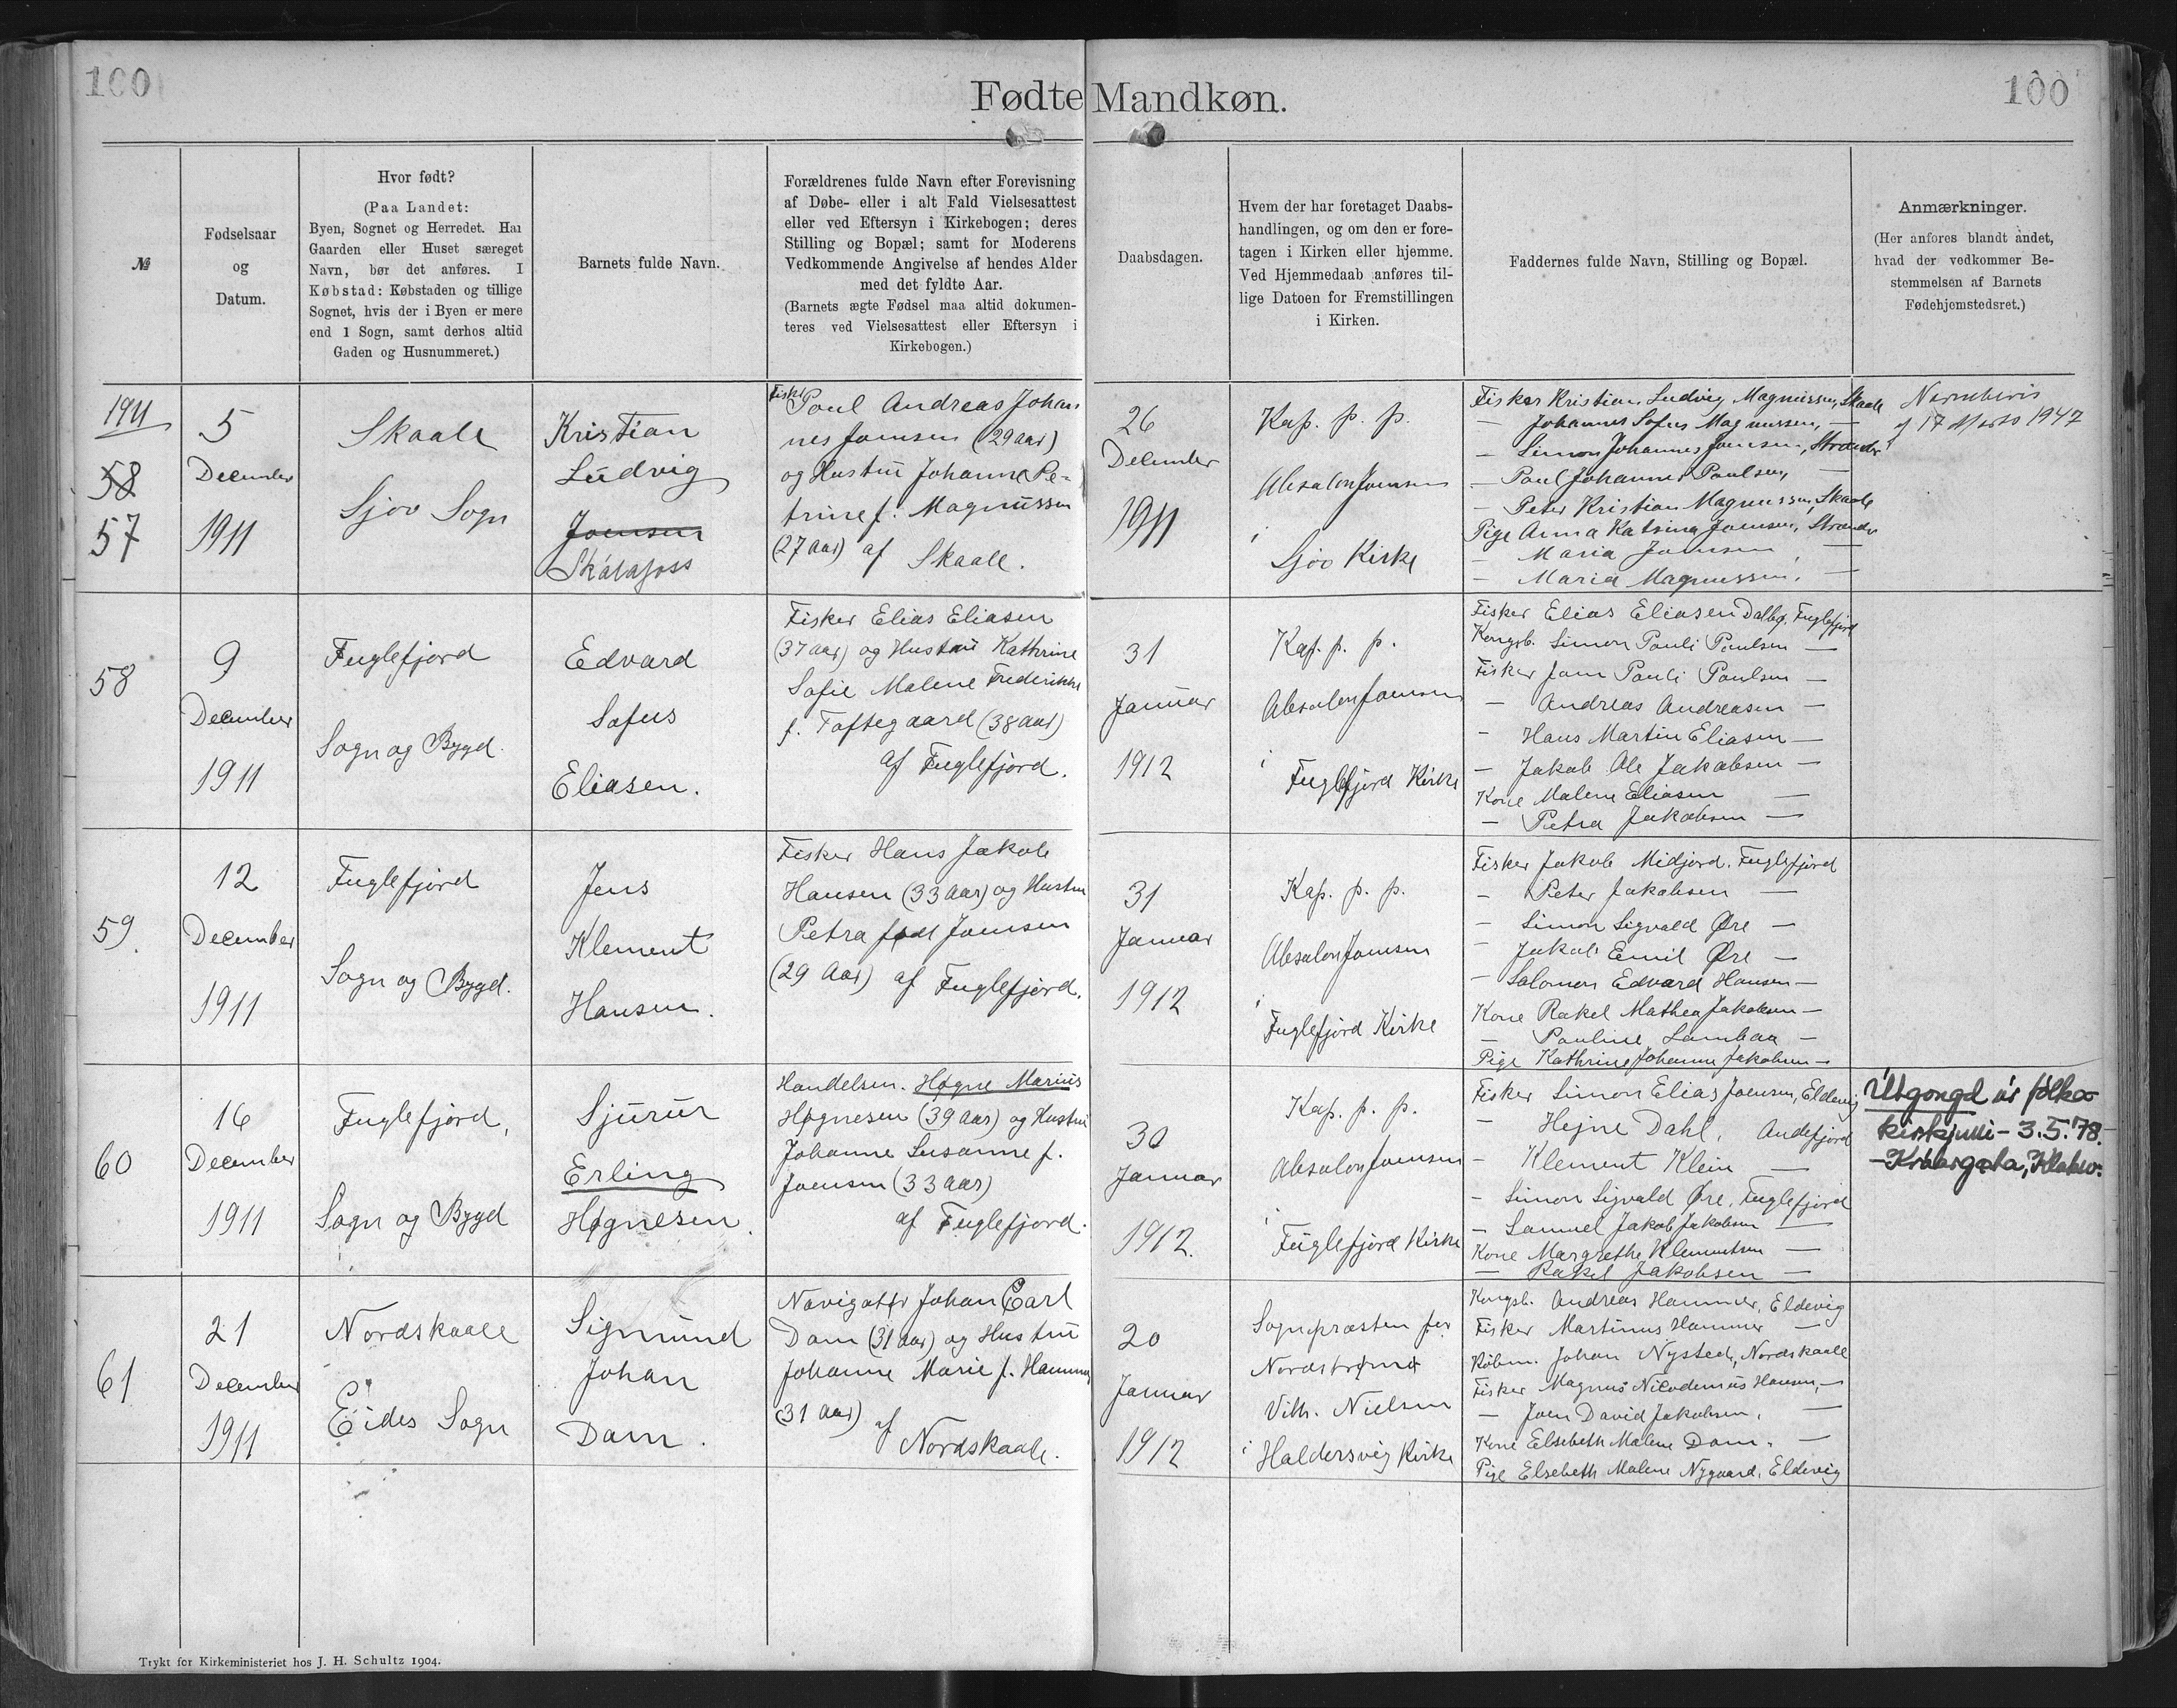 100
Fødte Mandkøn.
100
№
Fødselsaar
og
Datum.
Hvor født?
(Paa Landet:
Byen, Sognet og Herredet. Har
Gaarden eller Huset særeget
Navn, bør det anføres. I
Købstad: Købstaden og tillige
Sognet, hvis der i Byen er mere
end 1 Sogn, samt derhos altid
Gaden og Husnummeret.)
Barnets fulde Navn.
Forældrenes fulde Navn efter Forevisning
af Døbe- eller i alt Fald Vielsesattest
eller ved Eftersyn i Kirkebogen; deres
Stilling og Bopæl; samt for Moderens
Vedkommende Angivelse af hendes Alder
med det fyldte Aar.
(Barnets ægte Fødsel maa altid dokumen-
teres ved Vielsesattest eller Eftersyn i
Kirkebogen.)
Daabsdagen.
Hvem der har foretaget Daabs-
handlingen, og om den er fore-
tagen i Kirken eller hjemme.
Ved Hjemmedaab anføres til-
lige Datoen for Fremstillingen
i Kirken.
Faddernes fulde Navn, Stilling og Bopæl.
Anmærkninger.
(Her anføres blandt andet,
hvad der vedkommer Be-
stemmelsen af Barnets
Fødehjemstedsret.)
1911
58
57
5
December
1911
Skaale
Sjov Sogn
Kristian
Ludvig
Joensen
Skálafoss
Fisker Poul Andreas Johan
nes Joensen (29 aar)
og Hustru Johanne Pe-
trine f. Magnussen
(27 aar) af Skaale.
26
December
1911
Kap. p. p.
Absalon Joensen
i
Sjov Kirke
Fisker Kristian Ludvig Magnussen, Skaale
— Johannes Sofus Magnussen, —
— Simon Johannes Joensen, Strænder
— Poul Johannes Poulsen, —
— Peter Kristian Magnussen, Skaale
Pige Anna Katrina Joensen, Strænder
— Maria Joensen, —
— Maria Magnussen, —
Navnebevis
af 17 Marts 1947
58
9
December
1911
Fuglefjord
Sogn og Bygd.
Edvard
Sofus
Eliasen.
Fisker Elias Eliasen
(37 aar) og Hustru Kathrine
Sofie Malene Frederikke
f. Toftegaard (38 aar)
af Fuglefjord.
31
Januar
1912
Kap. p. p.
Absalon Joensen
i
Fuglefjord Kirke
Fisker Elias Eliasen Dalbø, Fuglefjord
Kongsb. Simon Pauli Poulsen —
Fisker Joan Pauli Poulsen —
— Andreas Andreasen —
— Hans Martin Eliasen —
— Jakob Ole Jakobsen —
Kone Malene Eliasen —
— Petra Jakobsen —
59.
12
December
1911
Fuglefjord
Sogn og Bygd.
Jens
Klement
Hansen.
Fisker Hans Jakob
Hansen (33 aar) og Hustru
Petra født Joensen
(29 Aar) af Fuglefjord.
31
Januar
1912
Kap. p. p.
Absalon Joensen
i
Fuglefjord Kirke
Fisker Jakob Midjord. Fuglefjord
— Peter Jakobsen —
— Simon Sigvald Øre —
— Jakob Emil Øre —
— Salomon Edvard Hansen —
Kone Rakel Mathea Jakobsen —
— Pauline Lambaa —
Pige Kathrine Johanne Jakobsen —
60
16
December
1911
Fuglefjord,
Sogn og Bygd
Sjurur
Erling
Høgnesen.
Handelsm. Høgne Marius
Høgnesen (39 aar) og Hustru
Johanne Susanne f.
Joensen (33 aar)
af Fuglefjord.
30
Januar
1912.
Kap. p. p.
Absalon Joensen
i
Fuglefjord Kirke
Fisker Simon Elias Joensen, Eldevig
— Hejne Dahl, Andefjord
— Klement Klein —
— Simon Sigvald Øre, Fuglefjord
— Samuel Jakob Jakobsen —
Kone Margrethe Klementsen —
— Rakel Jakobsen —
Útgongd úr fólka-
kirkjuni - 3.5.'78.
61
21
December
1911
Nordskaale
Eides Sogn
Sigmund
Johan
Dam.
Navigatør Johan Carl
Dam (31 aar) og Hustru
Johanne Marie f. Hammer
(31 aar)
af Nordskaale.
20
Januar
1912
Sognepræsten for
Nordstrømø
Vilh. Nielsen
i Haldersvig Kirke
Kongsb. Andreas Hammer, Eldevig
Fisker Martinus Hammer —
Købm. Johan Nysted, Nordskaale
Fisker Magnus Nicodemus Hansen, —
— Joen David Jakobsen, —
Kone Elsebeth Malene Dam, —
Pige Elsebeth Malene Nygaard, Eldevig
Trykt for Kirkeministeriet hos J. H. Schultz 1904.